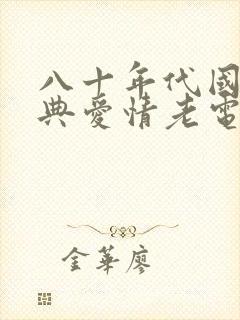 八十年代國
典愛情老電
金華廖